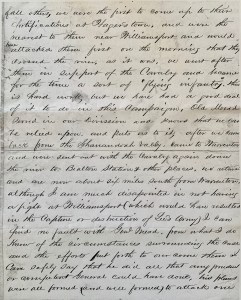 all others, we were the first to come up to their
fortifications at Hagerstown, and were the
nearest to them near Williamsport and would
attacked them first on the morning that they
crossed the river, as it was, we went after
them in support of the Cavalry and became
for the time a sort of flying infantry, it
is hard work, but we have had a good deal
of it to do in this Campaign, Old Meade
in our Division and knows that we can
be relied upon and puts us to it, after we came
back from the Shenandoah Valley, came to Warrenton
and were sent out with the Cavalry again down
the river to Bealton Station & other places, we
are now about six miles south from
although I am much disappointed in not having
a fight at Williamsport (which would have resulted
in the Capture or destruction of Lees Army) I can
find no fault with Genl Mead, from what I do
know of the circumstances surrounding the case
and the efforts put forth to our some I
can safely say that he did all that any
or competent General could have done, his plans
were all formed (and well formed) to attack one